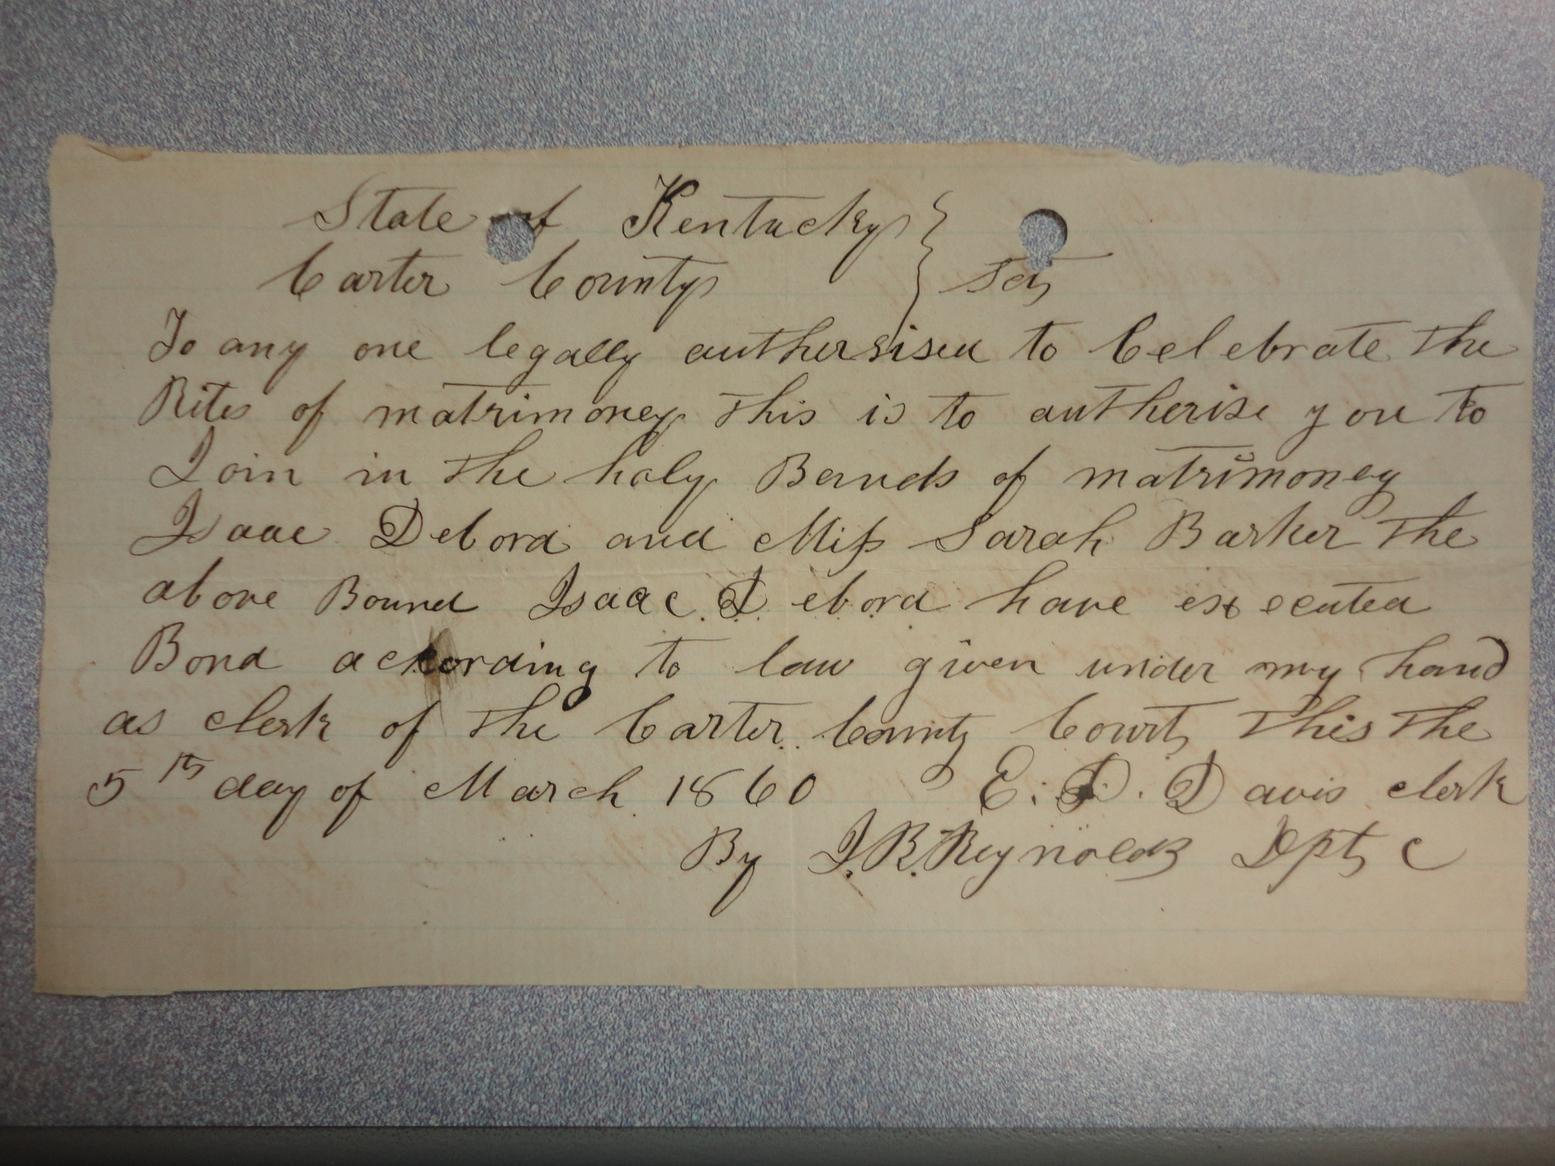 State of Kentucky }
Carter County } Sct
To any one legally authersised to Celebrate the
Rites of matrimoney This is to autherise you to
Join in the holy Bands of matrimoney
Isaac Debord and Miss Sarah Barker the
above Bound Isaac Debord have executed
Bond according to law given under my hand
as clerk of the Carter County Court This the
5th day of March 1860 E. D. Davis clerk
By J. R. Reynolds Dpty C